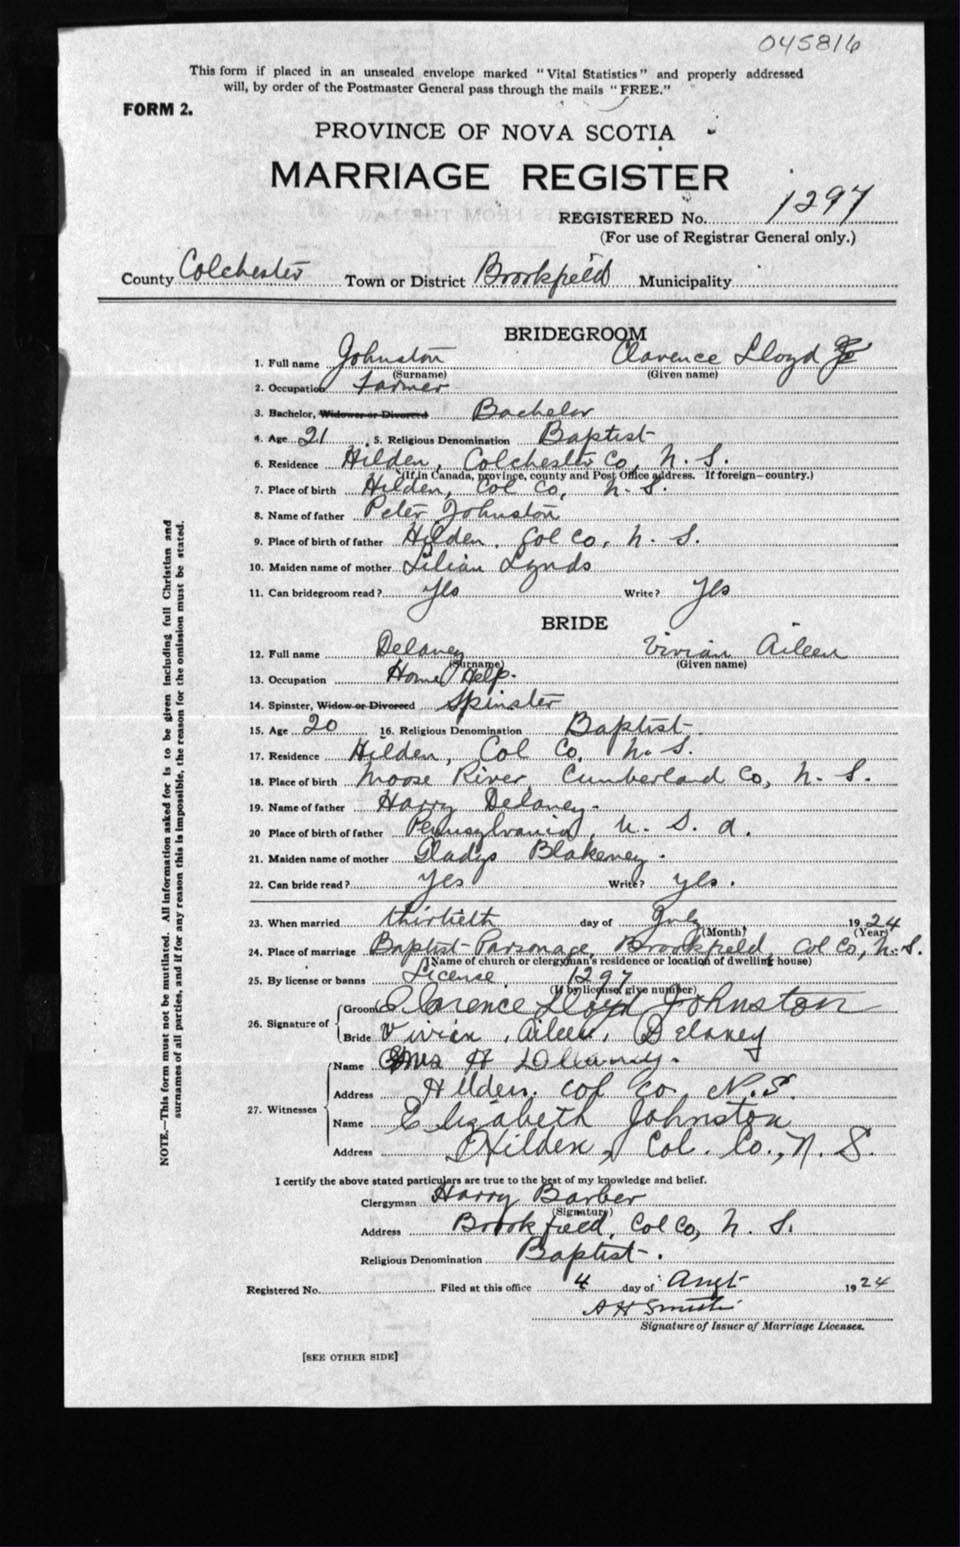 045816
This form if placed in an unsealed envelope marked "Vital Statistics" and properly addressed
will, by order of the Postmaster General pass through the mails "FREE."
FORM 2.
PROVINCE OF NOVA SCOTIA
MARRIAGE REGISTER
REGISTERED No. 1297
(For use of Registrar General only.)
County Colchester Town or District Brookfield Municipality
BRIDEGROOM
1. Full name Johnston Clarence Lloyd
(Surname) (Given name)
2. Occupation Farmer
3. Bachelor, Widower or Divorced Bachelor
4. Age 21 5. Religious Denomination Baptist
6. Residence Hilden, Colchester Co, N. S.
(If in Canada, province, county and Post Office address. If foreign—country.)
7. Place of birth Hilden, Col Co, N. S.
8. Name of father Peter Johnston
9. Place of birth of father Hilden, Col Co, N. S.
10. Maiden name of mother Lilian Lynds
11. Can bridegroom read? Yes Write? Yes
BRIDE
12. Full name Delaney Vivian Aileen
(Surname) (Given name)
13. Occupation Home Help.
14. Spinster, Widow or Divorced Spinster
15. Age 20 16. Religious Denomination Baptist
17. Residence Hilden, Col Co. N. S.
18. Place of birth Moose River, Cumberland Co, N. S.
19. Name of father Harry Delaney.
20 Place of birth of father Pennsylvania, U. S. a.
21. Maiden name of mother Gladys Blakeney.
22. Can bride read? Yes Write? yes.
23. When married thirtieth day of July 1924
(Month) (Year)
24. Place of marriage Baptist Parsonage, Brookfield, Col Co, N. S.
(Name of church or clergyman's residence or location of dwelling house)
25. By license or banns License 1297
(If by license, give number)
26. Signature of
Groom Clarence Lloyd Johnston
Bride Vivian, Aileen, Delaney
27. Witnesses
Name Mrs H
Address Hilden. Col Co N. S.
Name Elizabeth Johnston
Address Hilden, Col. Co., N. S.
I certify the above stated particulars are true to the best of my knowledge and belief.
Clergyman Harry Barber
(Signature)
Address Brookfield, Col Co, N. S.
Religious Denomination Baptist.
Registered No. Filed at this office 4 day of Augt 1924
A H Smith
Signature of Issuer of Marriage Licenses.
[SEE OTHER SIDE]
NOTE.—This form must not be mutilated. All information asked for is to be given including full Christian and
surnames of all parties, and if for any reason this is impossible, the reason for the omission must be stated.